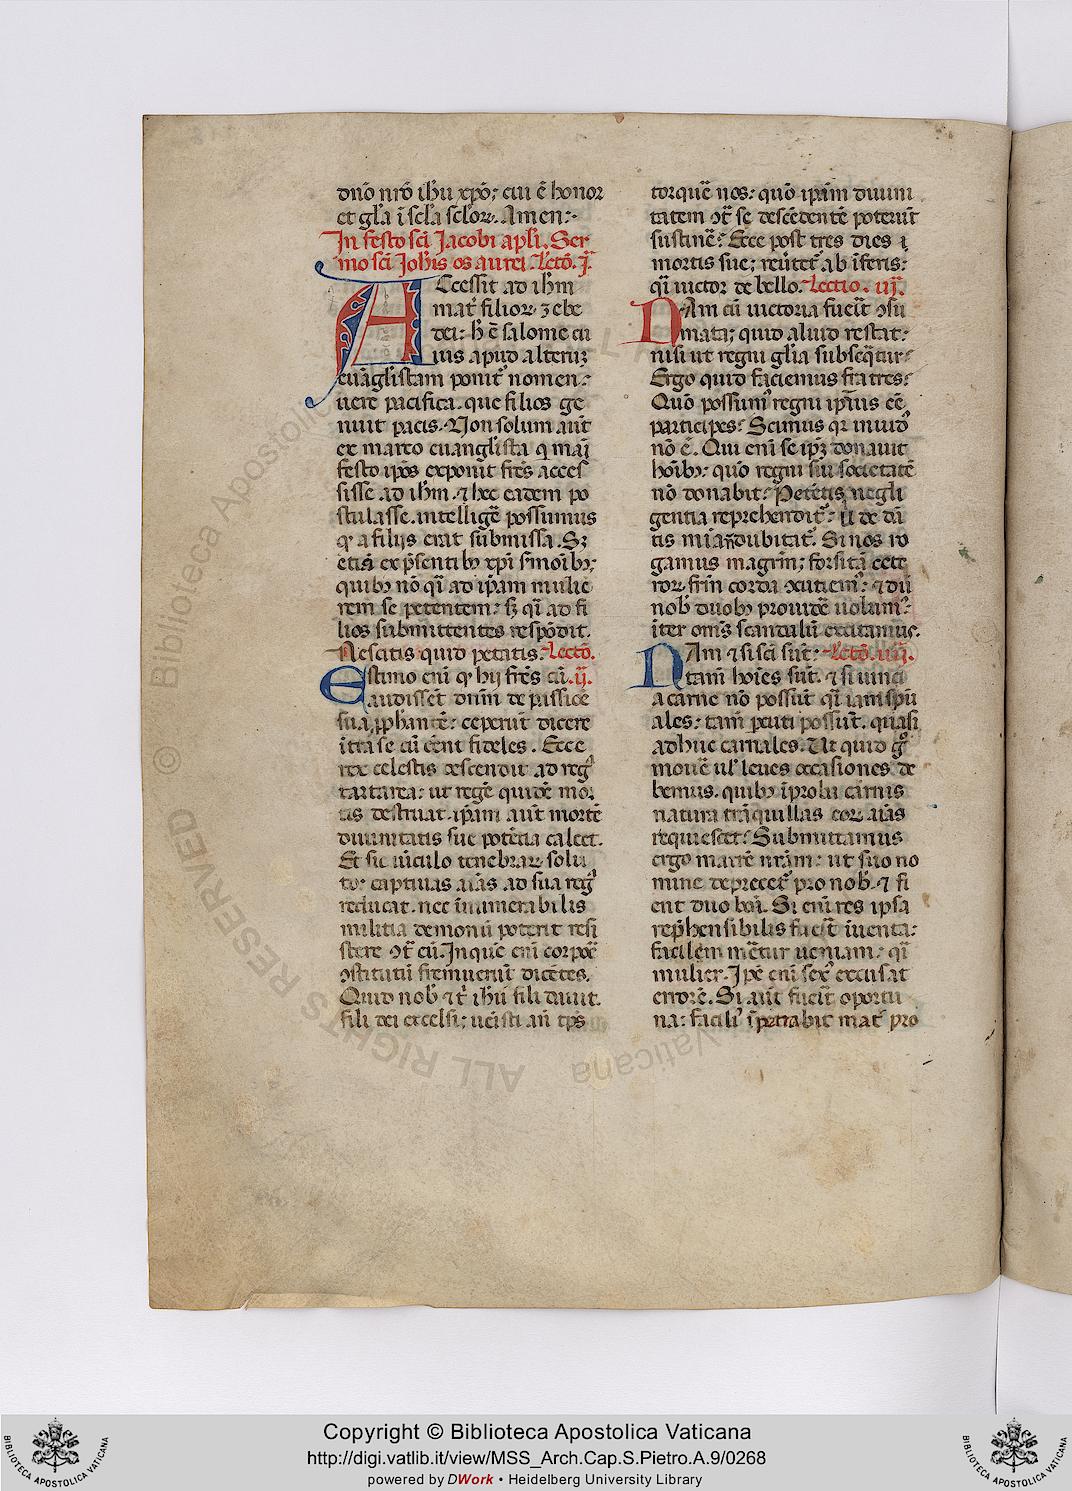 dnō nrō ihū xp̄o; cui ē honor
et gl̄a ī scl̄a scl̄or. Amen:
In festo sc̄i Jacobi apl̄i. Ser
mo sc̄i Joh̄is os aurei. Lectō. j.
ACcessit ad ih̄m
mat̄ filior. zebe
dei: h̄ ē salome cu
ius apud alterū
euāglistam ponit̄ nomen:
uere pacifica. que filios ge
nuit pacis. Non solum aūt
ex marco euanglista q̄ maī
festo ip̄os exponit fr̄es acces
sisse ad ih̄m. ⁊ hec eadem po
stulasse. intelligē possumus
qꝰ a filijs erat submissa. Sꝫ
etiā ex p̄sentibꝫ xp̄i s̄moībꝫ;
quibꝫ nō q̄i ad ip̄am mulie
rem se petentem: sꝫ q̄i ad fi
lios submittentes respōdit.
Nescitis quid petatis. Lectō.
Estimo enī qꝰ hij fr̄es cū .ij.
audissēt dn̄m de passiōe
sua ꝓph̄antē: ceperūt dicere
itra se cū ceni fideles. Ecce
rex celestis descendit ad reḡ
tartarea: ut regē quidē mor
tis destruat. ip̄am aūt mortē
diuinitatis sue potētia calcet.
Et sic uīculo tenebrar. solu
to: captiuas aīas ad sua reḡ
reducat. nec īnumerabilis
militia demonū poterit resi
stere ↄt̄ cū. In quē enī corpoē
ↄstitutū fremuerūt dicētes.
Quid nobꝫ ⁊ t̄ ih̄u fili dauit.
fili dei excelsi; uēisti an̄ tp̄s
torquē nos: quō ip̄am diuini
tatem ↄt̄ se descēdentē poterūt
sustinē: Ecce post tres dies
mortis sue; reūtet̄ ab īferis:
q̄i uictor de bello. Lectio. iij.
NAm cū uictoria fuēit ↄsu
mata; quid aliud restat:
nisi ut regni gl̄ia subseq̄tur:
Ergo quid faciemus fratres:
Quō possumꝰ regni ip̄ius eē
participes: Scimus qr inuidꝰ
nō ē. Qui enī se ip̄ꝫ donauit
hoībꝫ: quō regni sui societatē
nō donabit: Petētis negli
gentia reprehendit̄: de dā
tis dubitat̄. Si nos ro
gamus magr̄m; forsitā cete
ror. fr̄m corda ꝯcutiemꝰ: ⁊ dū
nobꝫ duobꝫ prouidē uolumꝰ:
iter om̄s scandalū excitamus.
NAm ⁊ si sc̄i sūt: Lectō. iiij.
tam̄ hoīes sūt. ⁊ si uinci
a carne nō possūt q̄i iam sp̄u
ales: tam̄ pcuti possūt. quasi
adhuc carnales. Ut quid gͦ
mouē ul̄ leues occasiones de
bemus. quibꝫ īprobi carnis
natura trāquillas cor. aīas
requiescet: Submittamus
ergo matrē nrām: ut suo no
mine deprecet̄ pro nobꝫ. ⁊ fi
ent duo boī. Si enī res ipsa
rep̄hensibilis fuēit īuenta:
facilem mētur ueniam: q̄i
mulier. Ipē enī sexꝰ excusat
errorē. Si aūt fuēit oportu
na: faciliꝰ īpetrabit mat̄ pro
© Biblioteca Apostolica Vaticana
ALL RIGHTS RESERVED
Copyright © Biblioteca Apostolica Vaticana
http://digi.vatlib.it/view/MSS_Arch.Cap.S.Pietro.A.9/0268
powered by DWork • Heidelberg University Library
BIBLIOTECA APOSTOLICA VATICANA
BIBLIOTECA APOSTOLICA VATICANA